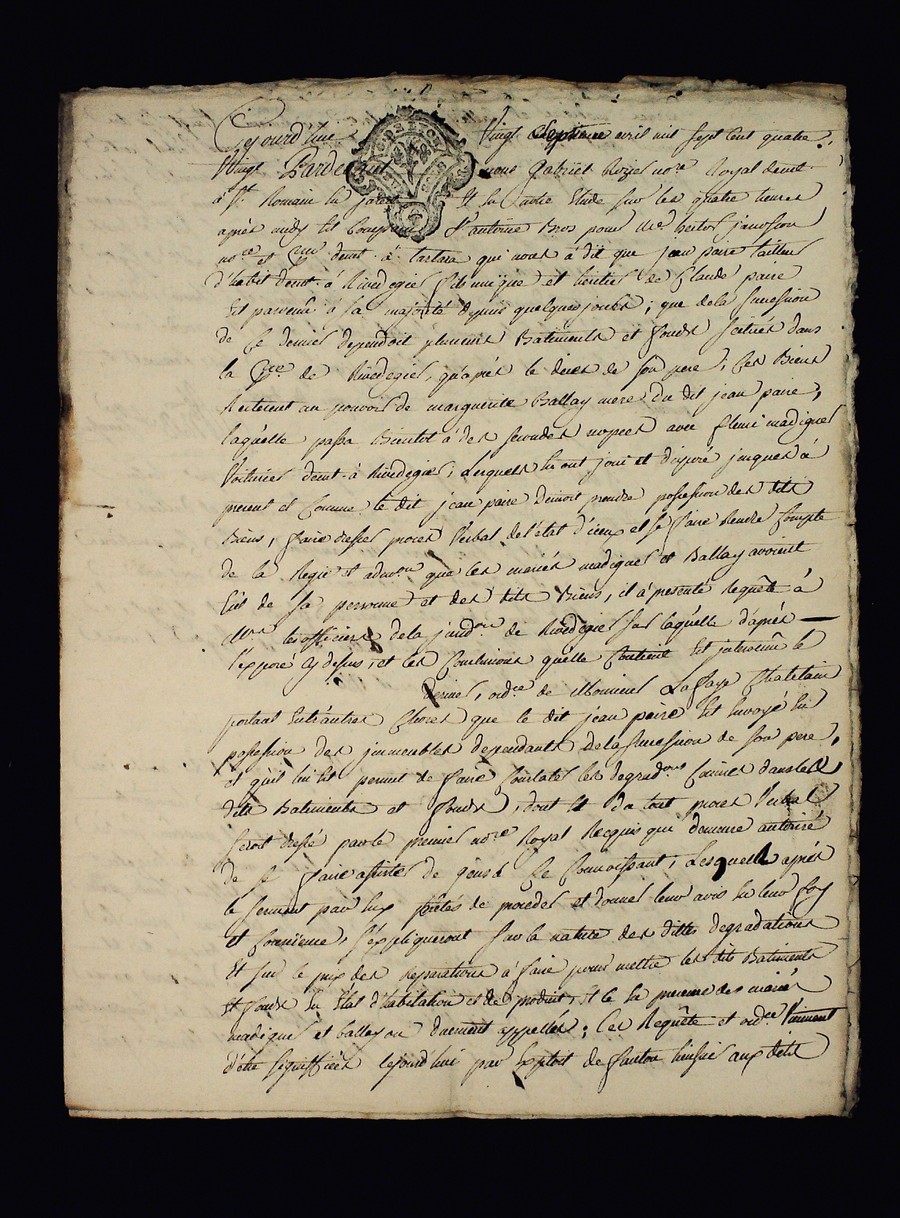 Cejourd'huy Vingt Septieme avril mil sept cent quatre
Vingt Pardevant nous Gabriel Rozier no.re Royal demt
à St. Romain en jarez Et en notre Etude sur les quatre heures
après midy Est Comparu S. antoine Bros pour Me
no.re et demt à tartara qui nous à dit que jean paire tailleur
d'habit demt à Rivedegier fils unique et heritier de Claude paire
Est parvenu à sa majorité depuis quelques jours, que dela succession
de Ce dernier dependoit plusieurs Batiments et fonds scitués dans
la de Rivedegier, qu'après le deces de son pere, Ces Biens
Resterent au pouvoir de marguerite Ballay mere du dit jean paire,
laquelle passa Bientot à des secondes nopces avec fleuri madigner
Voiturier demt à Rivedegier, lesquels en ont joui et disposé jusques à
present et Comme le dit jean paire desiroit prendre possession des dits
Biens, faire dresser proces Verbal de l'état d'iceux et se faire Rendre Compte
de la Regie et admon que les mariés madigner et Ballay avoient
Eus de sa personne et des dits Biens, il à presenté Requête à
Mrs les officiers dela de Rivedegier sur laquelle d'après
l'exposé cy dessus, et les Conclusions quelle Contient Est intervenu le
dernier, ordce de Monsieur Lafaye Chatelain
portant Entr'autres Choses que le dit jean paire Est Envoyé En
possession des immeubles dependants dela succession de son pere,
et qu'il lui Est permis de faire Constater les degradons Commises dans les
dits Batiments et fonds, dont Et du tout proces Verbal
seroit dressé par le premier nore Royal Requis qui demeure autorisé
de se faire assister de gens à Ce Connoissant, Lesquels après
le serment par Eux prêté de proceder et donner leur avis En leur foy
et Conscience, s'expliqueront sur la nature des dittes degradations
Et sur le prix des reparations à faire pour mettre les dits Batiments
Et fonds En Etat d'habitation et de produit, Et le En presence des mariés
madigner et ballay ou duement appellés; Ces Requête et ordce Viennent
d'être signiffiées cejourd'hui par Exploit de fanton huissier aux dits